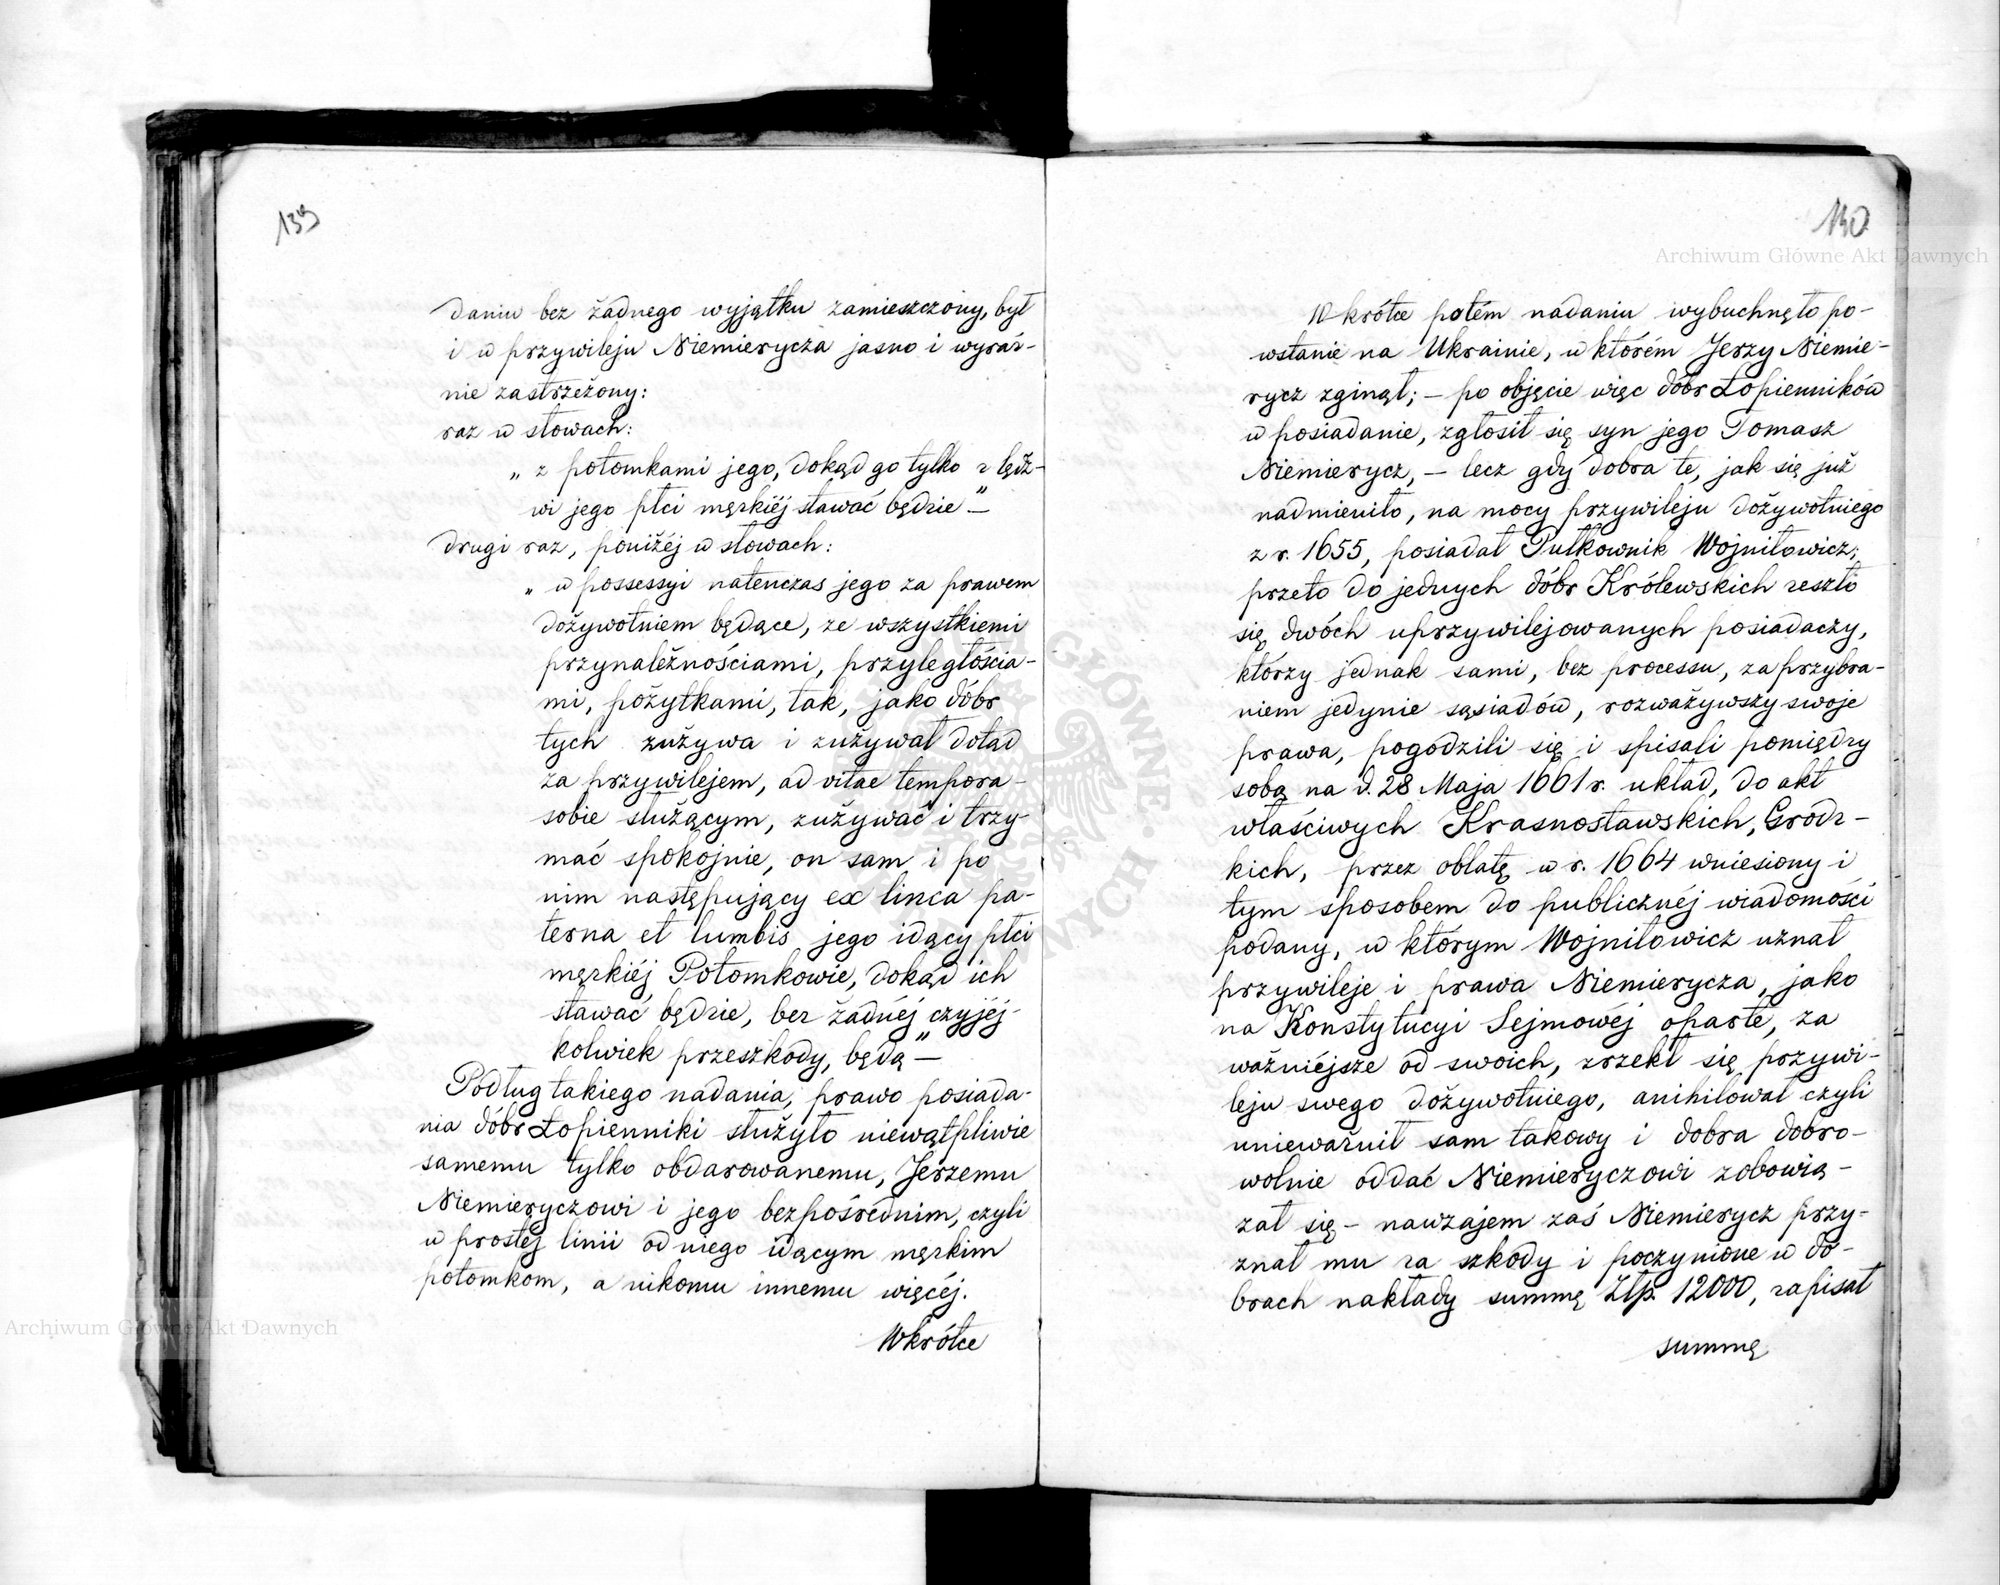 139
daniu bez żadnego wyjątku zamieszczony, był
i w przywileju Niemierycza jasno i wyraź-
nie zastrzeżony:
raz w słowach:
„z potomkami jego, dokąd go tylko z lędź-
wi jego płci męzkiéj stawać będzie” —
drugi raz, poniżéj w słowach:
„w possessyi natenczas jego za prawem
dożywotniem będące, ze wszystkiemi
przynależnościami, przyległościa-
mi, pożytkami, tak, jako dóbr
tych zużywa i zużywał dotąd
za przywilejem, ad vitae tempora
sobie służącym, zużywać i trzy-
mać spokojnie, on sam i po
nim następujący ex linea pa-
terna et lumbis jego idący płci
męzkiéj Potomkowie, dokąd ich
stawać będzie, bez żadnéj czyjéj-
kolwiek przeszkody, będą” —
Podług takiego nadania, prawo posiada-
nia dóbr Łopienniki służyło niewątpliwie
samemu tylko obdarowanemu, Jerzemu
Niemieryczowi i jego bezpośrednim, czyli
w prostéj linii od niego idącym męzkim
potomkom, a nikomu innemu więcéj.
Wkrótce
140
Archiwum Główne Akt Dawnych
Wkrótce potém nadaniu wybuchnęło po-
wstanie na Ukrainie, w którém Jerzy Niemie-
rycz zginął; — po objęcie więc dóbr Łopienników
w posiadanie, zgłosił się syn jego Tomasz
Niemierycz, — lecz gdy dobra te, jak się już
nadmieniło, na mocy przywileju dożywotniego
z r. 1655, posiadał Pułkownik Wojniłowicz;
przeto do jednych dóbr Królewskich zeszło
się dwóch uprzywilejowanych posiadaczy,
którzy jednak sami, bez processu, za przybra-
niem jedynie sąsiadów, rozważywszy swoje
prawa, pogodzili się i spisali pomiędzy
sobą na d. 28 Maja 1661 r. układ, do akt
właściwych Krasnostawskich, Grodz-
kich, przez oblatę w r. 1664 wniesiony i
tym sposobem do publicznéj wiadomości
podany, w którym Wojniłowicz uznał
przywileje i prawa Niemierycza, jako
na Konstytucyi Sejmowéj oparte, za
ważniéjsze od swoich, zrzekł się przywi-
leju swego dożywotniego, anihilował czyli
unieważnił sam takowy i dobra dobro-
wolnie oddać Niemieryczowi zobowią-
zał się — nawzajem zaś Niemierycz przy-
znał mu za szkody i poczynione w do-
brach nakłady summę Złp. 12000, zapisał
summę
Archiwum Główne Akt Dawnych
GŁÓWNE